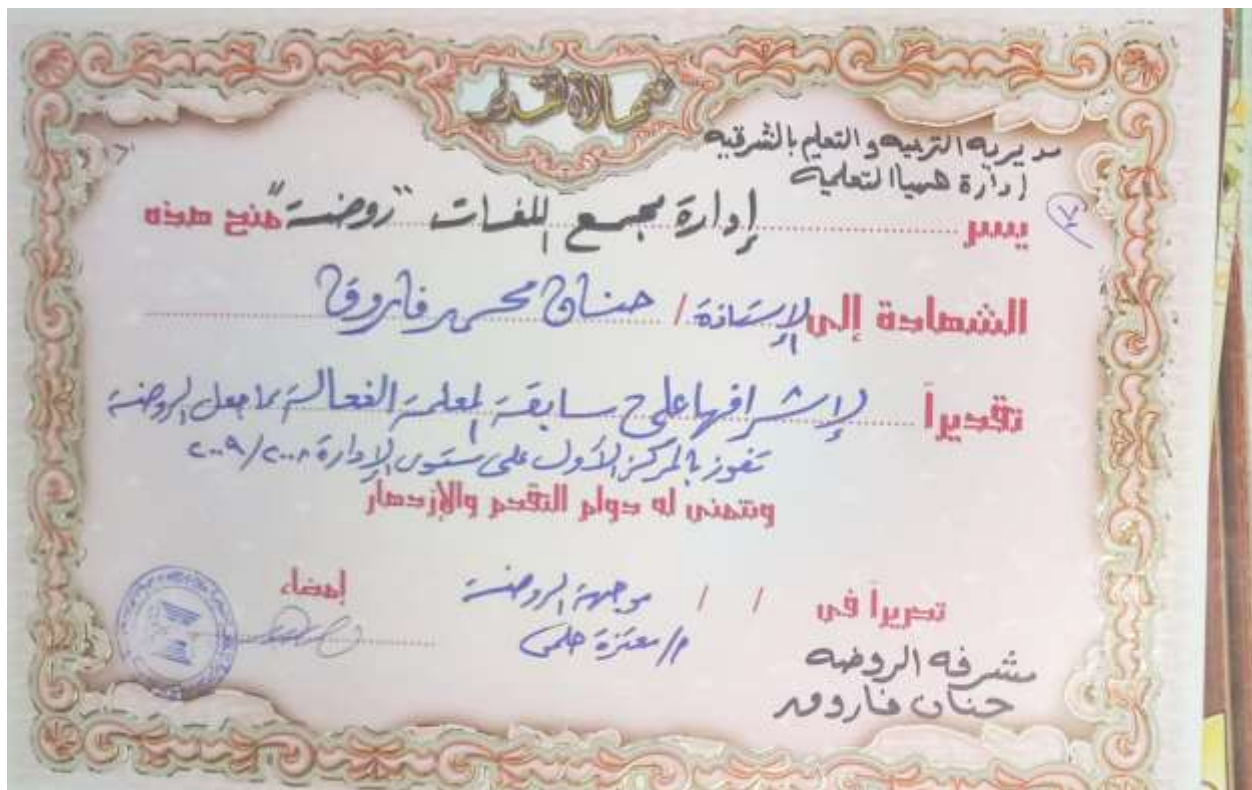 شهادة تقدير
مديرية التربيه و التعليم بالشرقيه
إدارة ههيا التعلمية
يسر إدارة مجمع اللغات "روضة" منح هذه
الشهادة إلى الأستاذة / حنان محمد فاروق
تقديراً لإشرافها على مسابقة المعلمة الفعالة مما جعل الروضة
تفوز بالمركز الأول على مستوى الإدارة ٢٠٠٨/٢٠٠٩
ونتمنى له دوام التقدم والإزدهار
تحريراً فى / / موجهة الروضة إمضاء
م/معتزة حلمى
مشرفه الروضه
حنان فاروق